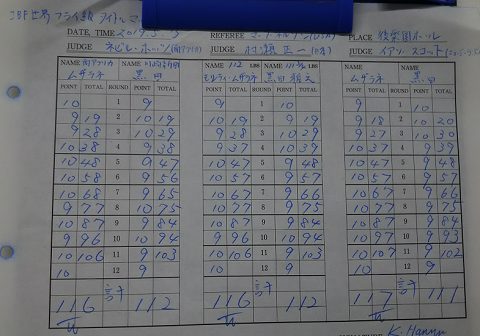 IBF世界フライ級タイトルマ
DATE, TIME 2019.5.3 REFEREE PLACE 後楽園ホール
JUDGE ネビル・ホッツ(南アフリカ) JUDGE 村瀬正一(日本) JUDGE イアン・スコット
NAME 南アフリカ NAME 川崎新田 NAME 112 LBS NAME 111 3/4 LBS NAME NAME
ムザラネ 黒田 モルティ・ムザラネ 黒田雅之 ムザラネ 黒田
POINT TOTAL ROUND POINT TOTAL POINT TOTAL ROUND POINT TOTAL POINT TOTAL ROUND POINT TOTAL
10 1 9 9 1 10 9 1 10
9 19 2 10 19 10 19 2 9 19 9 18 2 10 20
9 28 3 10 29 9 28 3 10 29 9 27 3 10 30
10 38 4 9 38 9 37 4 10 39 10 37 4 9 39
10 48 5 9 47 10 47 5 9 48 10 47 5 9 48
10 58 6 9 56 10 57 6 9 57 10 57 6 9 57
10 68 7 9 65 10 67 7 9 66 10 67 7 9 66
9 77 8 10 75 10 77 8 9 75 10 77 8 9 75
10 87 9 9 84 10 87 9 9 84 10 87 9 9 84
9 96 10 10 94 9 96 10 10 94 10 97 10 9 93
10 106 11 9 103 10 106 11 9 103 10 107 11 9 102
10 12 9 10 12 9 10 12 9
116 計 112 116 計 112 117 計 111
SIGNATURE K. Hannu